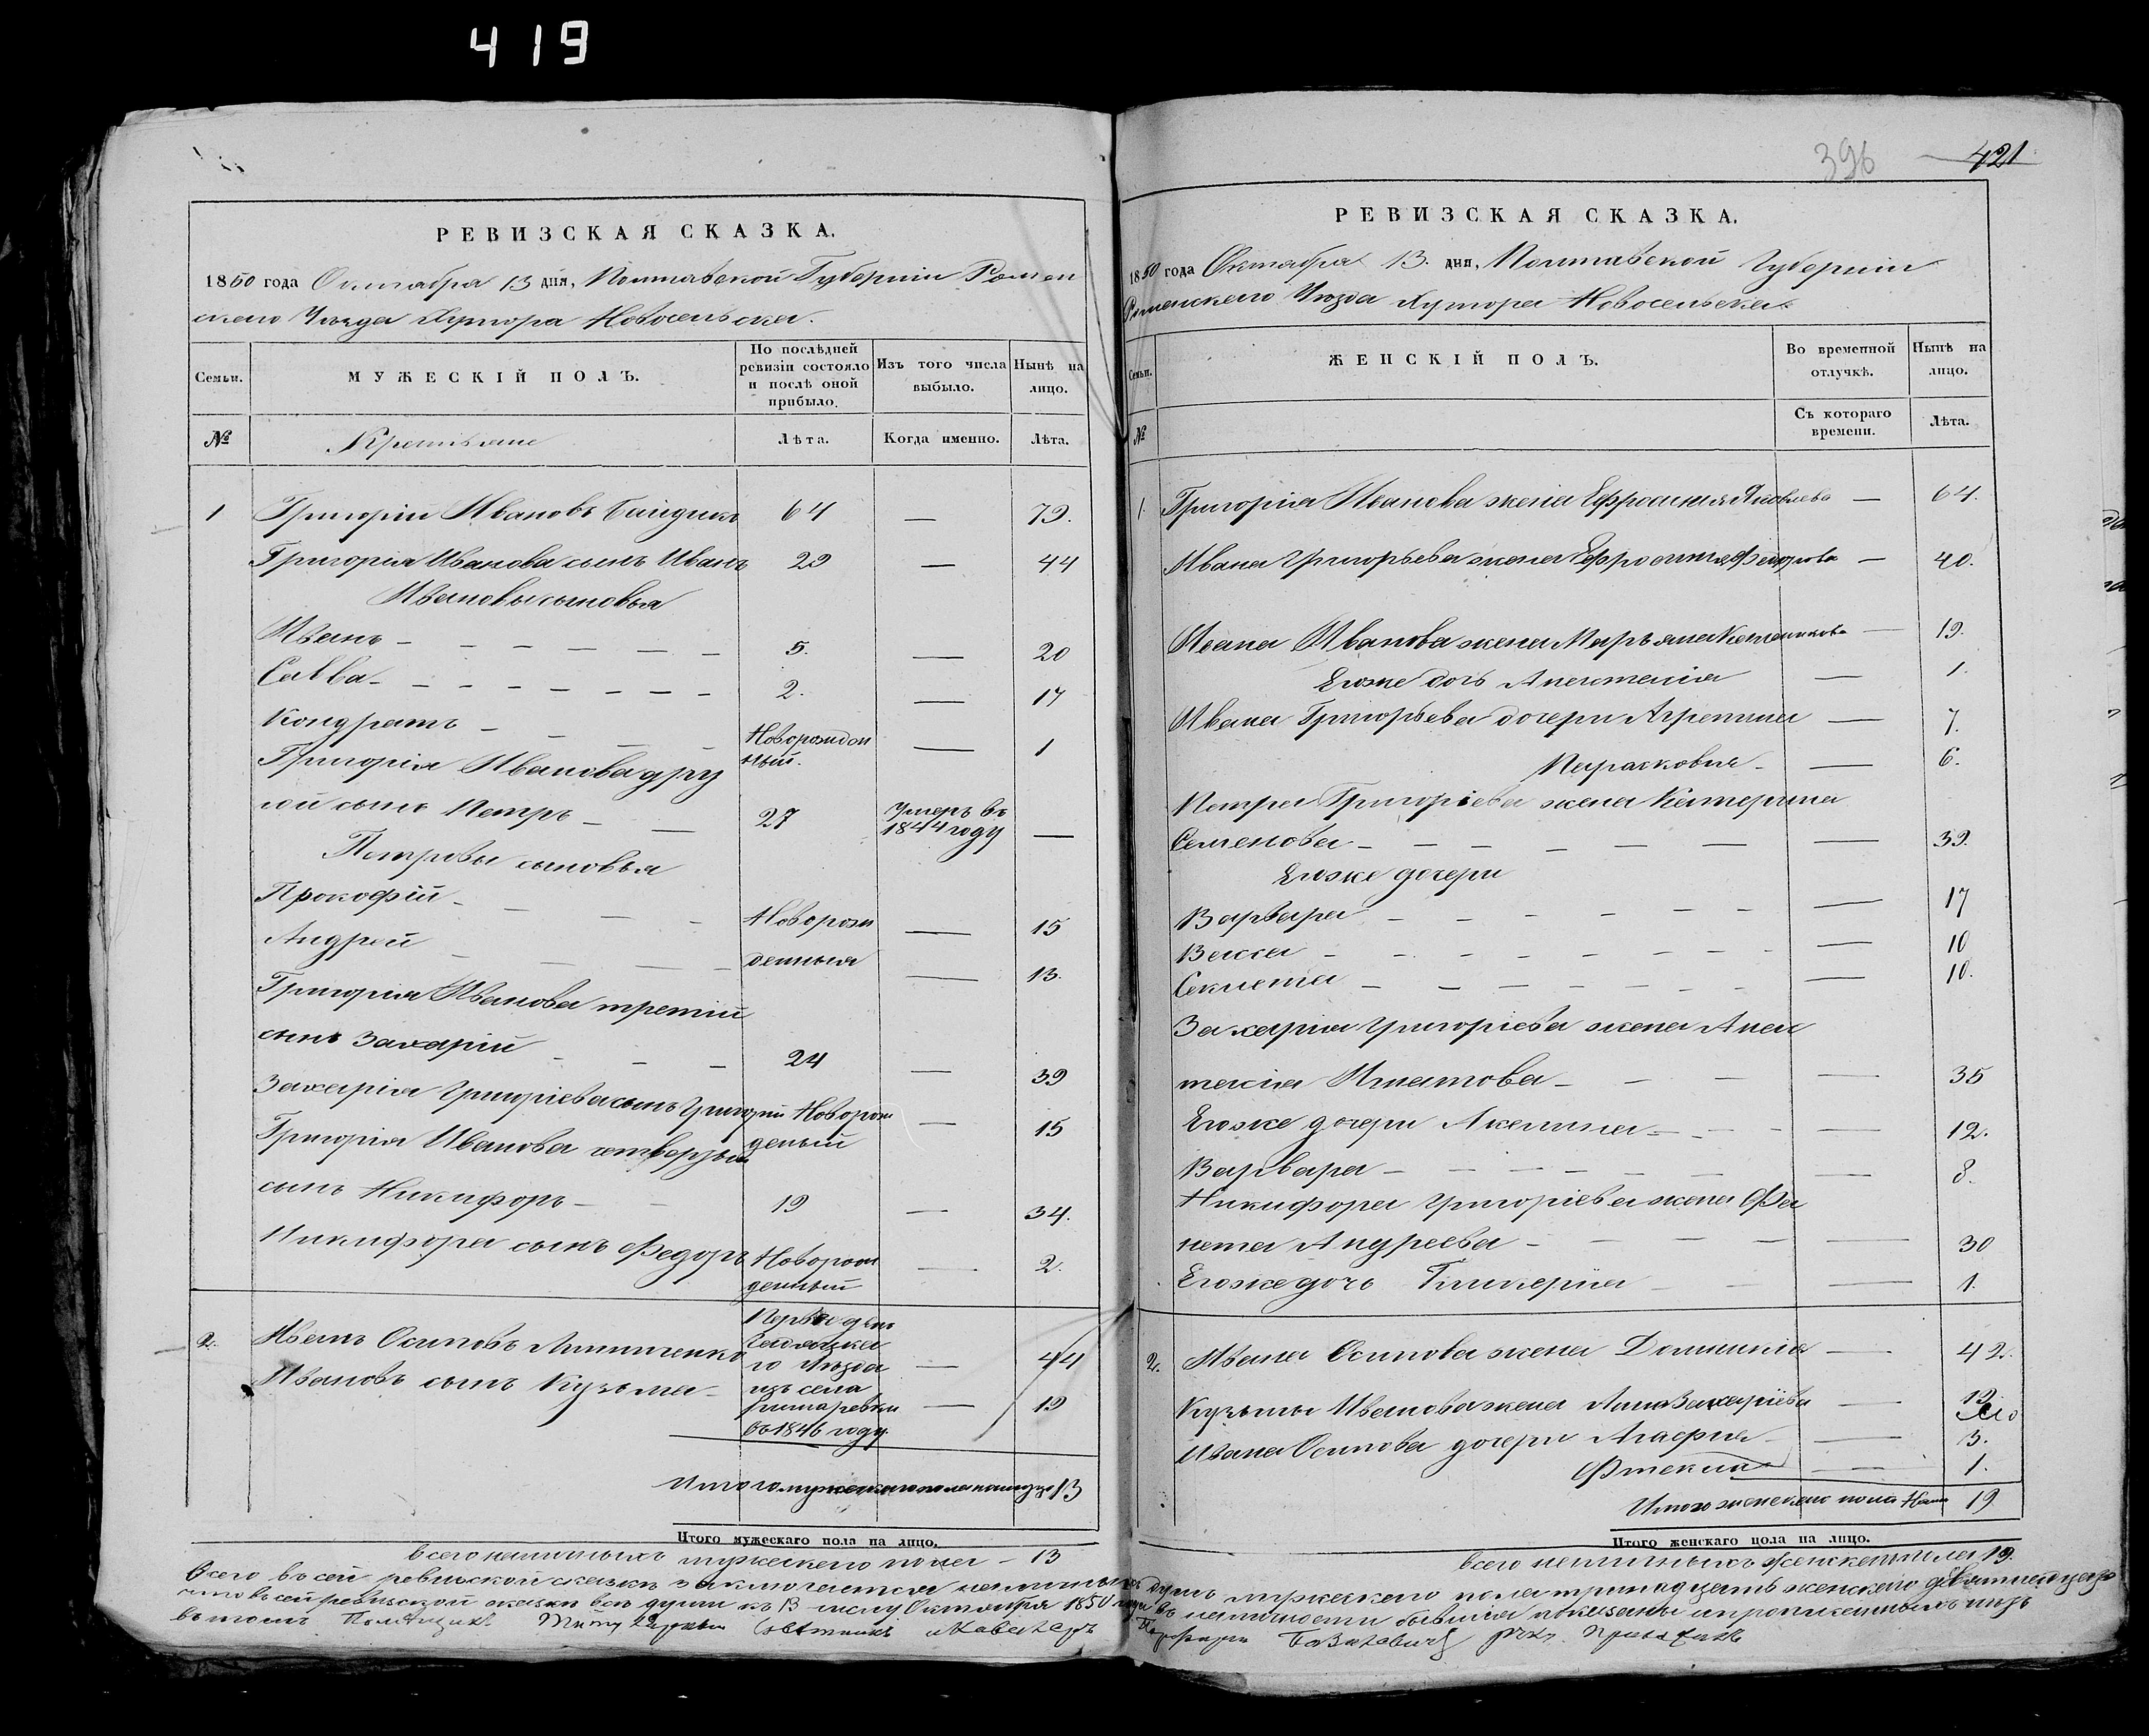 419
РЕВИЗСКАЯ СКАЗКА.
1850 года Октября 13 дня, Полтавской Губерніи Ромен
скаго Уѣзда Хутора Новосельска.
Семьи.
МУЖЕСКІЙ ПОЛЪ.
По послѣдней ревизіи состояло и послѣ оной прибыло.
Изъ того числа выбыло.
Нынѣ на лицо.
№ Крестьяне Лѣта. Когда именно. Лѣта.
1 Григорій Ивановъ 64 — 79.
Григорія Иванова сынъ Иванъ 29 — 44
Ивановы сыновья
Иванъ 5. — 20
Савва 2. — 17
Кондратъ Новорожден ный. — 1
Григорія Иванова дру
гой сынъ Петръ 27 Умеръ въ 1844 году —
Петровы сыновья
Прокофій Новорож — 15
Андрей денныя — 13.
Григорія Иванова третій
сынъ Захарій 24 — 39
Захарія Григоріева сынъ Григорій Новорож деный — 15
Григорія Иванова четвертый
сынъ Никифоръ 19 — 34.
Никифора сынъ Федоръ Новорож денный — 2.
2. Иванъ Осиповъ — 44
Ивановъ сынъ Кузьма — 19
Уѣзда
изъ села
въ 1846 году.
Итого мужескаго пола на лицо 13
Итого мужескаго пола на лицо.
всего наличныхъ мужескаго пола — 13
396 421
РЕВИЗСКАЯ СКАЗКА.
1850 года Октября 13. дня, Полтавской Губерніи
Роменскаго Уѣзда Хутора Новосельска
Семьи.
ЖЕНСКІЙ ПОЛЪ.
Во временной отлучкѣ.
Нынѣ на лицо.
№ Съ котораго времени. Лѣта.
1. Григорія Иванова жена Ефросинія Яковлева — 64.
Ивана Григорьева жена Ефросинія Федорова — 40.
Ивана Иванова жена Марьяна — 19.
Егоже дочь Анастасія — 1.
Ивана Григорьева дочери Агрепина — 7.
Парасковья — 6.
Петра Григоріева жена Катерина
Семенова — 39.
Егоже дочери
Варвара — 17
Васса — 10
Секлета — 10.
Захарія Григоріева жена Анас
тасія Игнатова — 35
Егоже дочери Акелина — 12.
Варвара — 8.
Никифора Григоріева жена Фе
Андреева — 30
Егоже дочь Гликерія — 1.
2. Ивана Осипова жена Домникія — 42.
Кузьмы Иванова жена Анна Захаріева — 19.
Ивана Осипова дочери Агафія — 3.
— 1.
Итого женскаго пола 19
Итого женскаго пола на лицо.
всего наличныхъ женскаго пола 19.
Всего въ сей ревизской сказкѣ заключается наличныхъ душъ мужескаго пола тринадцать женскаго девятнадцать
что въ сей ревизской сказкѣ всѣ души къ 13 числу Октября 1850 года въ наличности бывшія показаны и пропущенныхъ нѣтъ
въ томъ